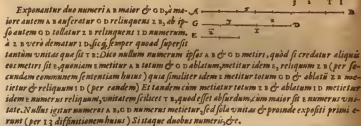 Exponantur duo numeri A B maior & G D, si a ma-
iore autem A B auferatur G D relinquens Z B, ab ip-
so autem G D tollatur Z B relinquens I D numerum,
à Z B verò dematur I D, sicq́; semper quoad supersit
tantùm vnitas quæ sit T Z: Dico nullum numerum ipsos A B & G D metiri, quòd si credatur aliquis
eos metiri sit E, quoniam E metitur totum A B, & ablatum G D idem E metietur, reliquum Z B (per se-
cundam communem sententiam huius) quia similiter idem E metitur totum G D & ablatũ Z B me-
tietur & reliquum I D (per eandem) Et tandem cùm metiatur totum Z B & ablatum I D metietur
idem E numerus reliquum, vnitatem scilicet T Z, quod esset absurdum, cùm maior sit E numerus vni-
tate. Nullus igitur numerus A B, G D numeros metietur, sed sola vnitas & proinde expositi primi e-
runt (per 13 diffinitionem huius) Si itaque duobus numeris, &c.
A T Z B
G I D
E